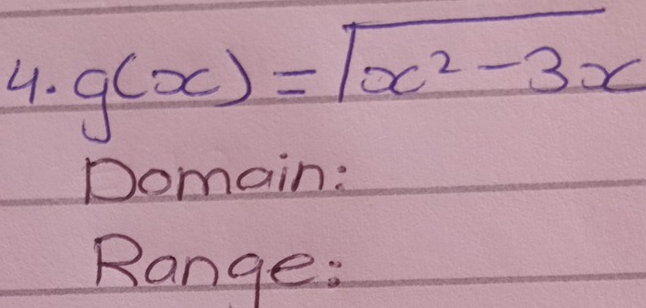 4. g(x) = √x² - 3x
Domain:
Range: